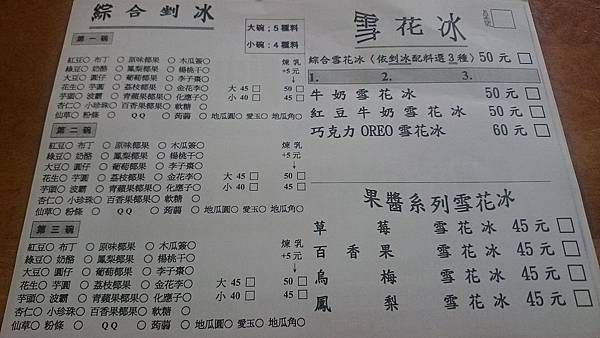 綜合剉冰
大碗；5種料
小碗；4種料
第一碗
紅豆○ 布丁 ○ 原味椰果 ○ 木瓜簽○ 煉乳
綠豆○ 奶酪 ○ 鳳梨椰果 ○ 楊桃干○ +5元
大豆○ 圓仔 ○ 葡萄椰果 ○ 李子棗○ ↓
花生○ 芋圓 ○ 荔枝椰果 ○ 金花李○ 大 45 □ 50 □
芋頭○ 波霸 ○ 青蘋果椰果○ 化應子○ 小 40 □ 45 □
杏仁○ 小珍珠○ 百香果椰果○ 軟糖 ○
仙草○ 粉條 ○ QQ ○ 蒟蒻 ○ 地瓜圓○ 愛玉○ 地瓜角○
第二碗
紅豆○ 布丁 ○ 原味椰果 ○ 木瓜簽○ 煉乳
綠豆○ 奶酪 ○ 鳳梨椰果 ○ 楊桃干○ +5元
大豆○ 圓仔 ○ 葡萄椰果 ○ 李子棗○ ↓
花生○ 芋圓 ○ 荔枝椰果 ○ 金花李○ 大 45 □ 50 □
芋頭○ 波霸 ○ 青蘋果椰果○ 化應子○ 小 40 □ 45 □
杏仁○ 小珍珠○ 百香果椰果○ 軟糖 ○
仙草○ 粉條 ○ QQ ○ 蒟蒻 ○ 地瓜圓○ 愛玉○ 地瓜角○
第三碗
紅豆○ 布丁 ○ 原味椰果 ○ 木瓜簽○ 煉乳
綠豆○ 奶酪 ○ 鳳梨椰果 ○ 楊桃干○ +5元
大豆○ 圓仔 ○ 葡萄椰果 ○ 李子棗○ ↓
花生○ 芋圓 ○ 荔枝椰果 ○ 金花李○ 大 45 □ 50 □
芋頭○ 波霸 ○ 青蘋果椰果○ 化應子○ 小 40 □ 45 □
杏仁○ 小珍珠○ 百香果椰果○ 軟糖 ○
仙草○ 粉條 ○ QQ ○ 蒟蒻 ○ 地瓜圓○ 愛玉○ 地瓜角○
雪花冰
綜合雪花冰〈依剉冰配料選3種〉50元□
1. 2. 3.
牛奶雪花冰 50元□
紅豆牛奶雪花冰 50元□
巧克力OREO雪花冰 60元□
果醬系列雪花冰
草莓雪花冰 45元□
百香果雪花冰 45元□
烏梅雪花冰 45元□
鳳梨雪花冰 45元□